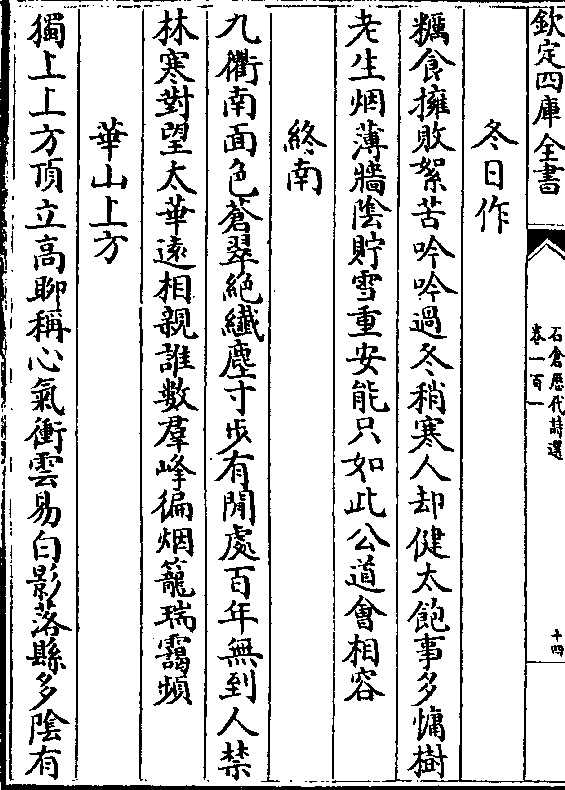 欽定四庫全書
石倉歷代詩選
卷一百一
十四
冬日作
糲食擁敗絮苦吟吟過冬稍寒人却健太飽事多慵樹
老生烟薄牆陰貯雪重安能只如此公道會相容
終南
九衢南面色蒼翠絕纖塵寸步有閒處百年無到人禁
林寒對望太華遠相親誰數羣峰徧烟籠瑞靄頻
華山上方
獨上上方頂立高聊稱心氣衝雲易白影落縣多陰有